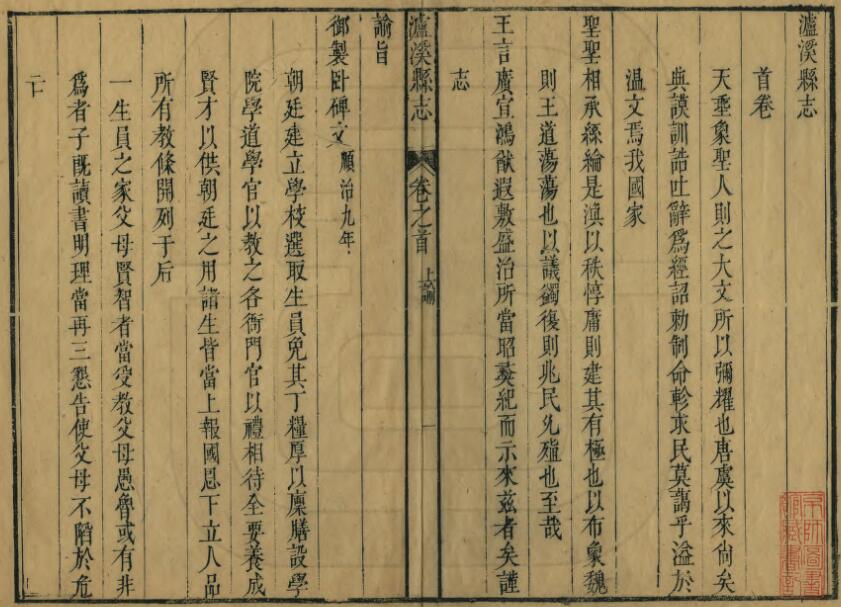 瀘溪縣志
首卷
天垂象聖人則之大文所以彌耀也唐虞以來尙矣
典謨訓誥吐辭爲經詔勅制命軫求民莫藹乎溢於
温文焉我國家
聖聖相承絲綸是滇以秩惇庸則建其有極也以布象魏
則王道蕩蕩也以議蠲復則兆民允殖也至哉
王言廣宣鴻猷遐敷盛治所當昭彝紀而示來茲者矣謹
志
瀘溪縣志
卷之首
上諭
一
諭旨
御製臥碑文 順治九年
朝廷建立學校選取生員免其丁糧厚以廩膳設學
院學道學官以教之各衙門官以禮相待全要養成
賢才以供朝廷之用諸生皆當上報國恩下立人品
所有教條開列于后
一生員之家父母賢智者當受教父母愚魯或有非
爲者子旣讀書明理當再三懇告使父母不陷於危